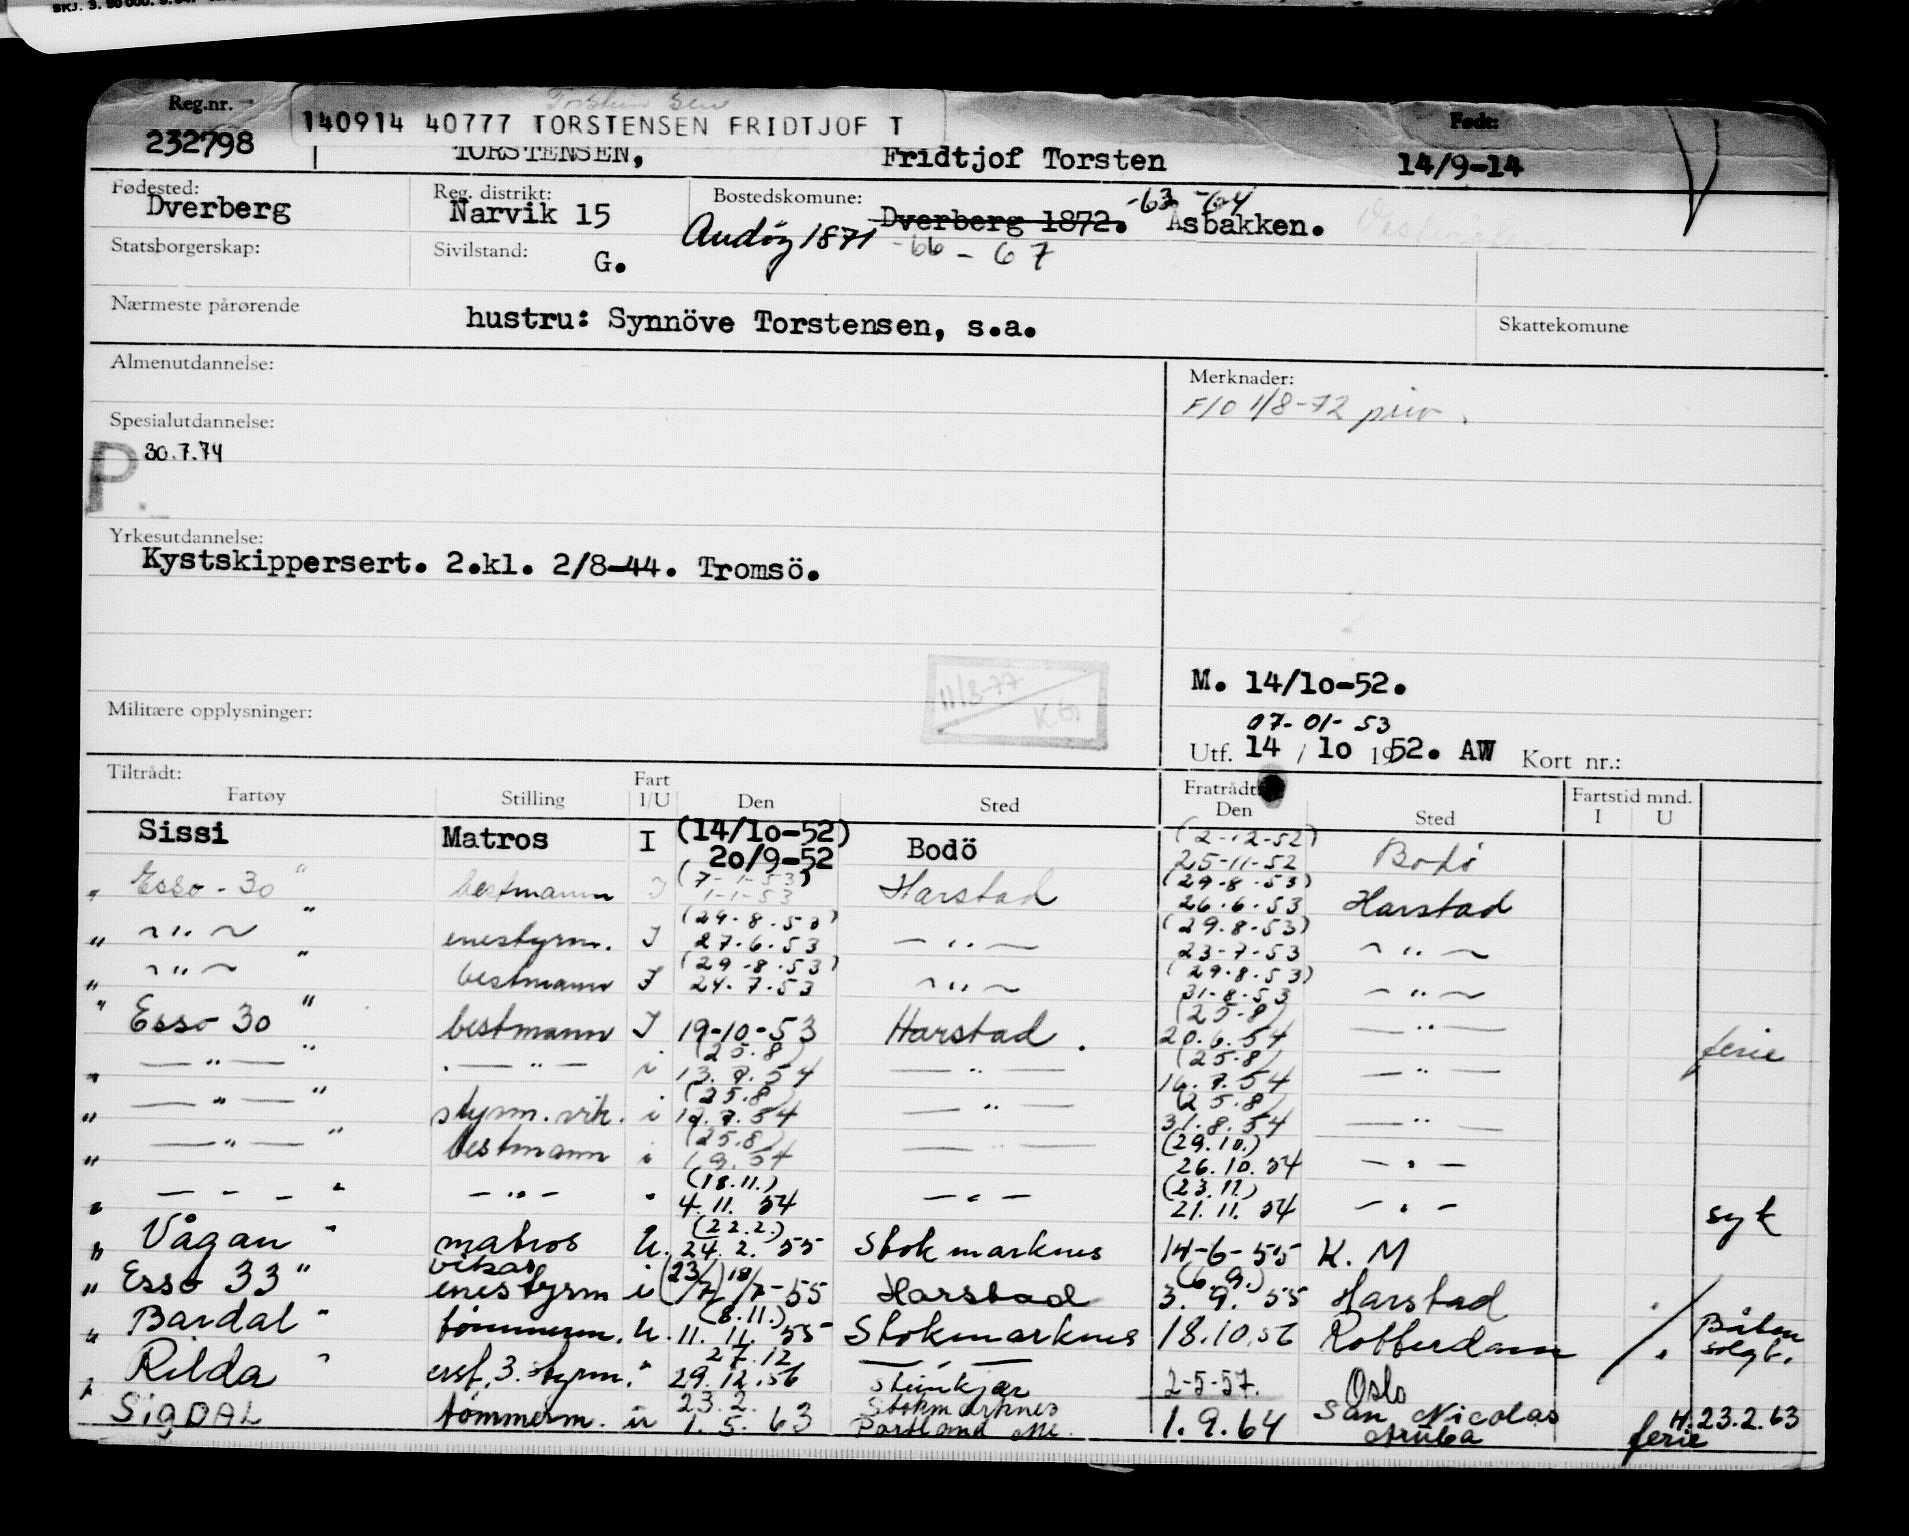 Reg.nr.
232798
140914 40777 TORSTENSEN FRIDTJOF T
TORSTENSEN, Fridtjof Torsten
Født:
14/9-14
Fødested: Dverberg
Reg. distrikt: Narvik 15
Bostedskomune: Dverberg 1872. -63 -64 Åsbakken.
Andøy 1871 -66 - 67
Statsborgerskap:
Sivilstand: G.
Nærmeste pårørende hustru: Synnöve Torstensen, s.a.
Skattekomune
Almenutdannelse:
Merknader:
F/O 1/8-72 priv.
Spesialutdannelse:
P. 30.7.74
Yrkesutdannelse:
Kystskippersert. 2.kl. 2/8-44. Tromsö.
11/3-77
M. 14/10-52.
Militære opplysninger:
07-01-53
Utf. 14 / 10 1952. AW Kort nr.:
Tiltrådt: Fartøy Stilling Fart I/U Den Sted Fratrådt Den Sted Fartstid mnd. I U
Sissi Matros I (14/10-52) 20/9-52 Bodö (2-12-52) 25-11-52 Bodö
" Esso-30 " bestmann I (7-1-53) 1-1-53 Harstad (29-8-53) 26.6.53 Harstad
" ~ " ~ " enestyrm. I (29.8.53) 27.6.53 — " — (29.8.53) 23-7-53 ~ " ~
" ~ " ~ " bestmann I (29-8-53) 24.7.53 ~ " ~ (29.8.53) 31-8-53 — " ~
" Esso 30 " bestmann I 19-10-53 Harstad. (25-8) 20.6.54 — " — ferie
" — " — " — " — i (25.8) 13.7.54 — " — (25.8) 16.7.54 — " —
" — " — " styrm. vik. i (25.8) 17.7.54 — " — (25.8) 31.8.54 — " —
" — " — " bestmann i (25.8) 1.9.54 — " — (29.10.) 26.10.54 — " —
" — " — " — " — " (18.11.) 4.11.54 — " — (23.11.) 21.11.54 — " — syk
" Vågan " matros U. (22.2.) 24.2.55 Stokmarknes 14-6-55 K. M
" Esso 33 " vikar enestyrm i (23/7) 18/7-55 Harstad (6.9.) 3.9.55 Harstad
" Bardal " tömmerm. U. (8.11.) 11.11.55 Stokmarknes 18.10.56 Rotterdam / . Båten solgt.
Rilda " erst. 3. styrm. " 27.12 29.12.56 — " — Steinkjer 2-5-57. Oslo
" SIGDAL tömmerm. u 23.2. 1.5.63 Stokmarknes Portland Me. 1.9.64 San Nicolas Aruba ferie H.23.2.63